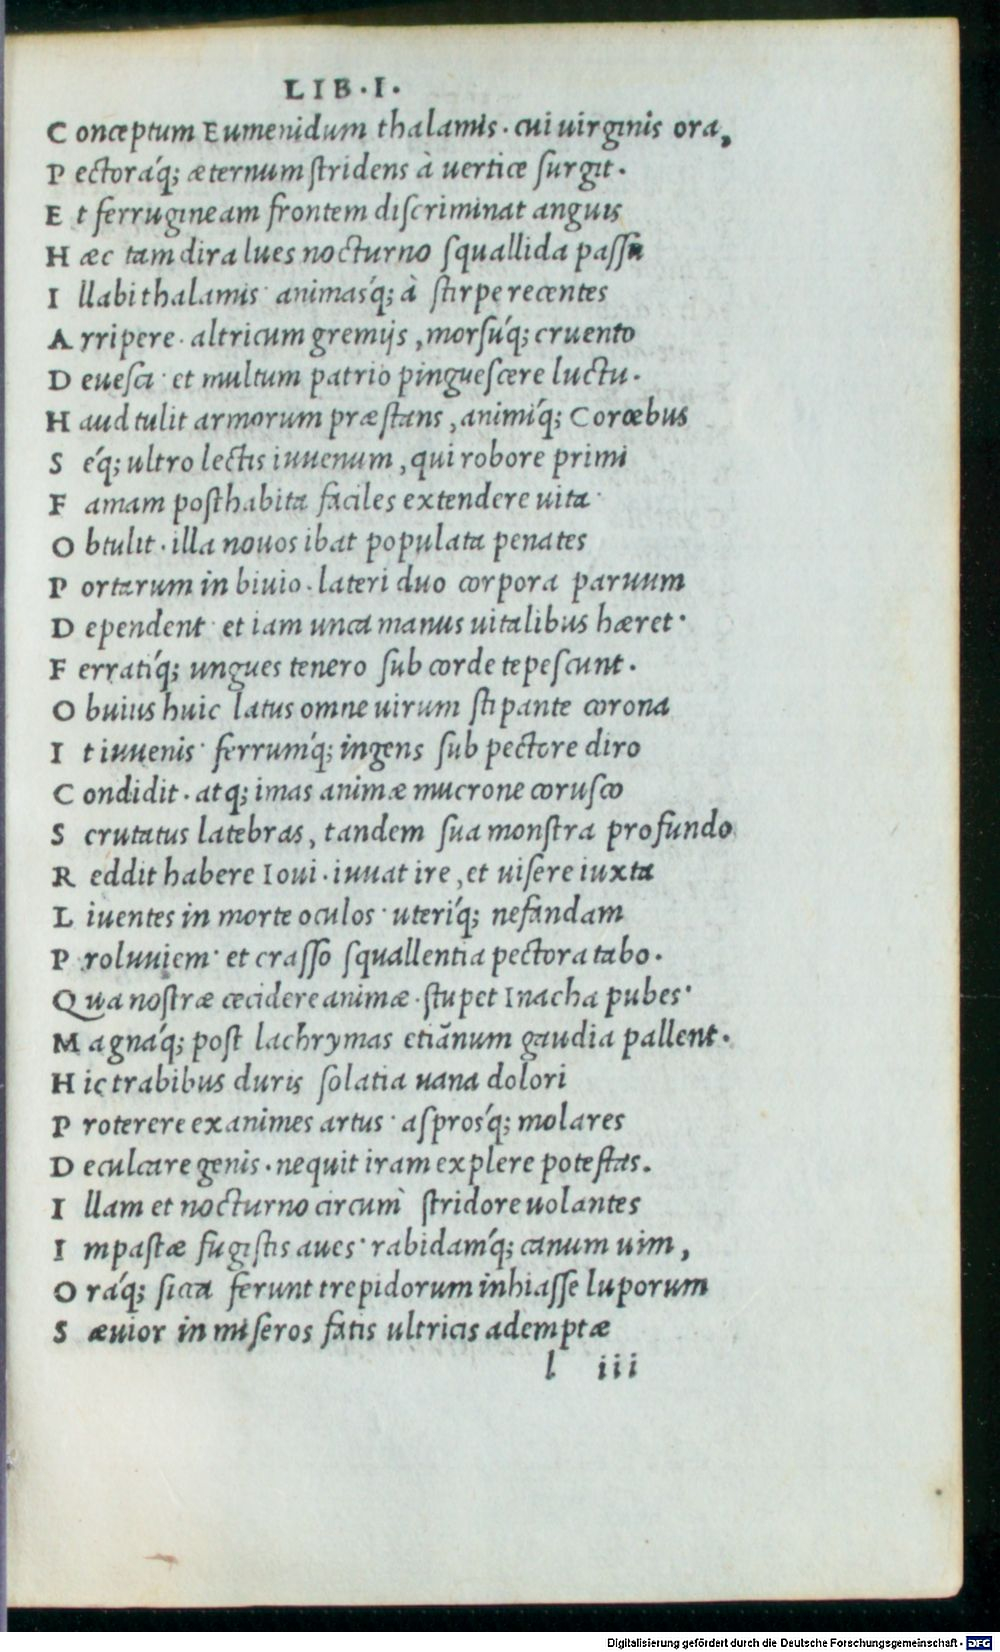 LIB·I·
C onceptum Eumenidum thalamis· cui uirginis ora,
P ectoráq; æternum ſtridens à uertice ſurgit·
E t ferrugineam frontem diſcriminat anguis
H æc tam dira lues nocturno ſquallida paſſu
I llabi thalamis· animasq́; à ſtirpe recentes
A rripere· altricum gremijs, morſúq; cruento
D eueſci· et multum patrio pingueſcere luctu·
H aud tulit armorum præſtans, animíq; Corœbus
S éq; ultro lectis iuuenum, qui robore primi
F amam poſthabita faciles extendere uita·
O btulit· illa nouos ibat populata penates
P ortarum in biuio· lateri duo corpora paruum
D ependent· et iam unca manus uitalibus hæret·
F erratíq; ungues tenero ſub corde tepeſcunt·
O buius huic latus omne uirum ſtipante corona
I t iuuenis· ferrumq́; ingens ſub pectore diro
C ondidit· atq; imas animæ mucrone coruſco
S crutatus latebras, tandem ſua monſtra profundo
R eddit habere Ioui· iuuat ire, et uiſere iuxta
L iuentes in morte oculos· uteríq; nefandam
P roluuiem· et craſſo ſquallentia pectora tabo·
Q ua noſtræ cecidere animæ· ſtupet Inacha pubes·
M agnáq; poſt lachrymas etiãnum gaudia pallent·
H ic trabibus duris ſolatia uana dolori
P roterere exanimes artus· aſprosq́; molares
D eculcare genis· nequit iram explere poteſtas.
I llam et nocturno circum̀ ſtridore uolantes
I mpaſtæ fugiſtis aues· rabidamq́; canum uim,
O ráq; ſicca ferunt trepidorum inhiaſſe luporum
S æuior in miſeros fatis ultricis ademptæ
l iii
Digitalisierung gefördert durch die Deutsche Forschungsgemeinschaft - DFG